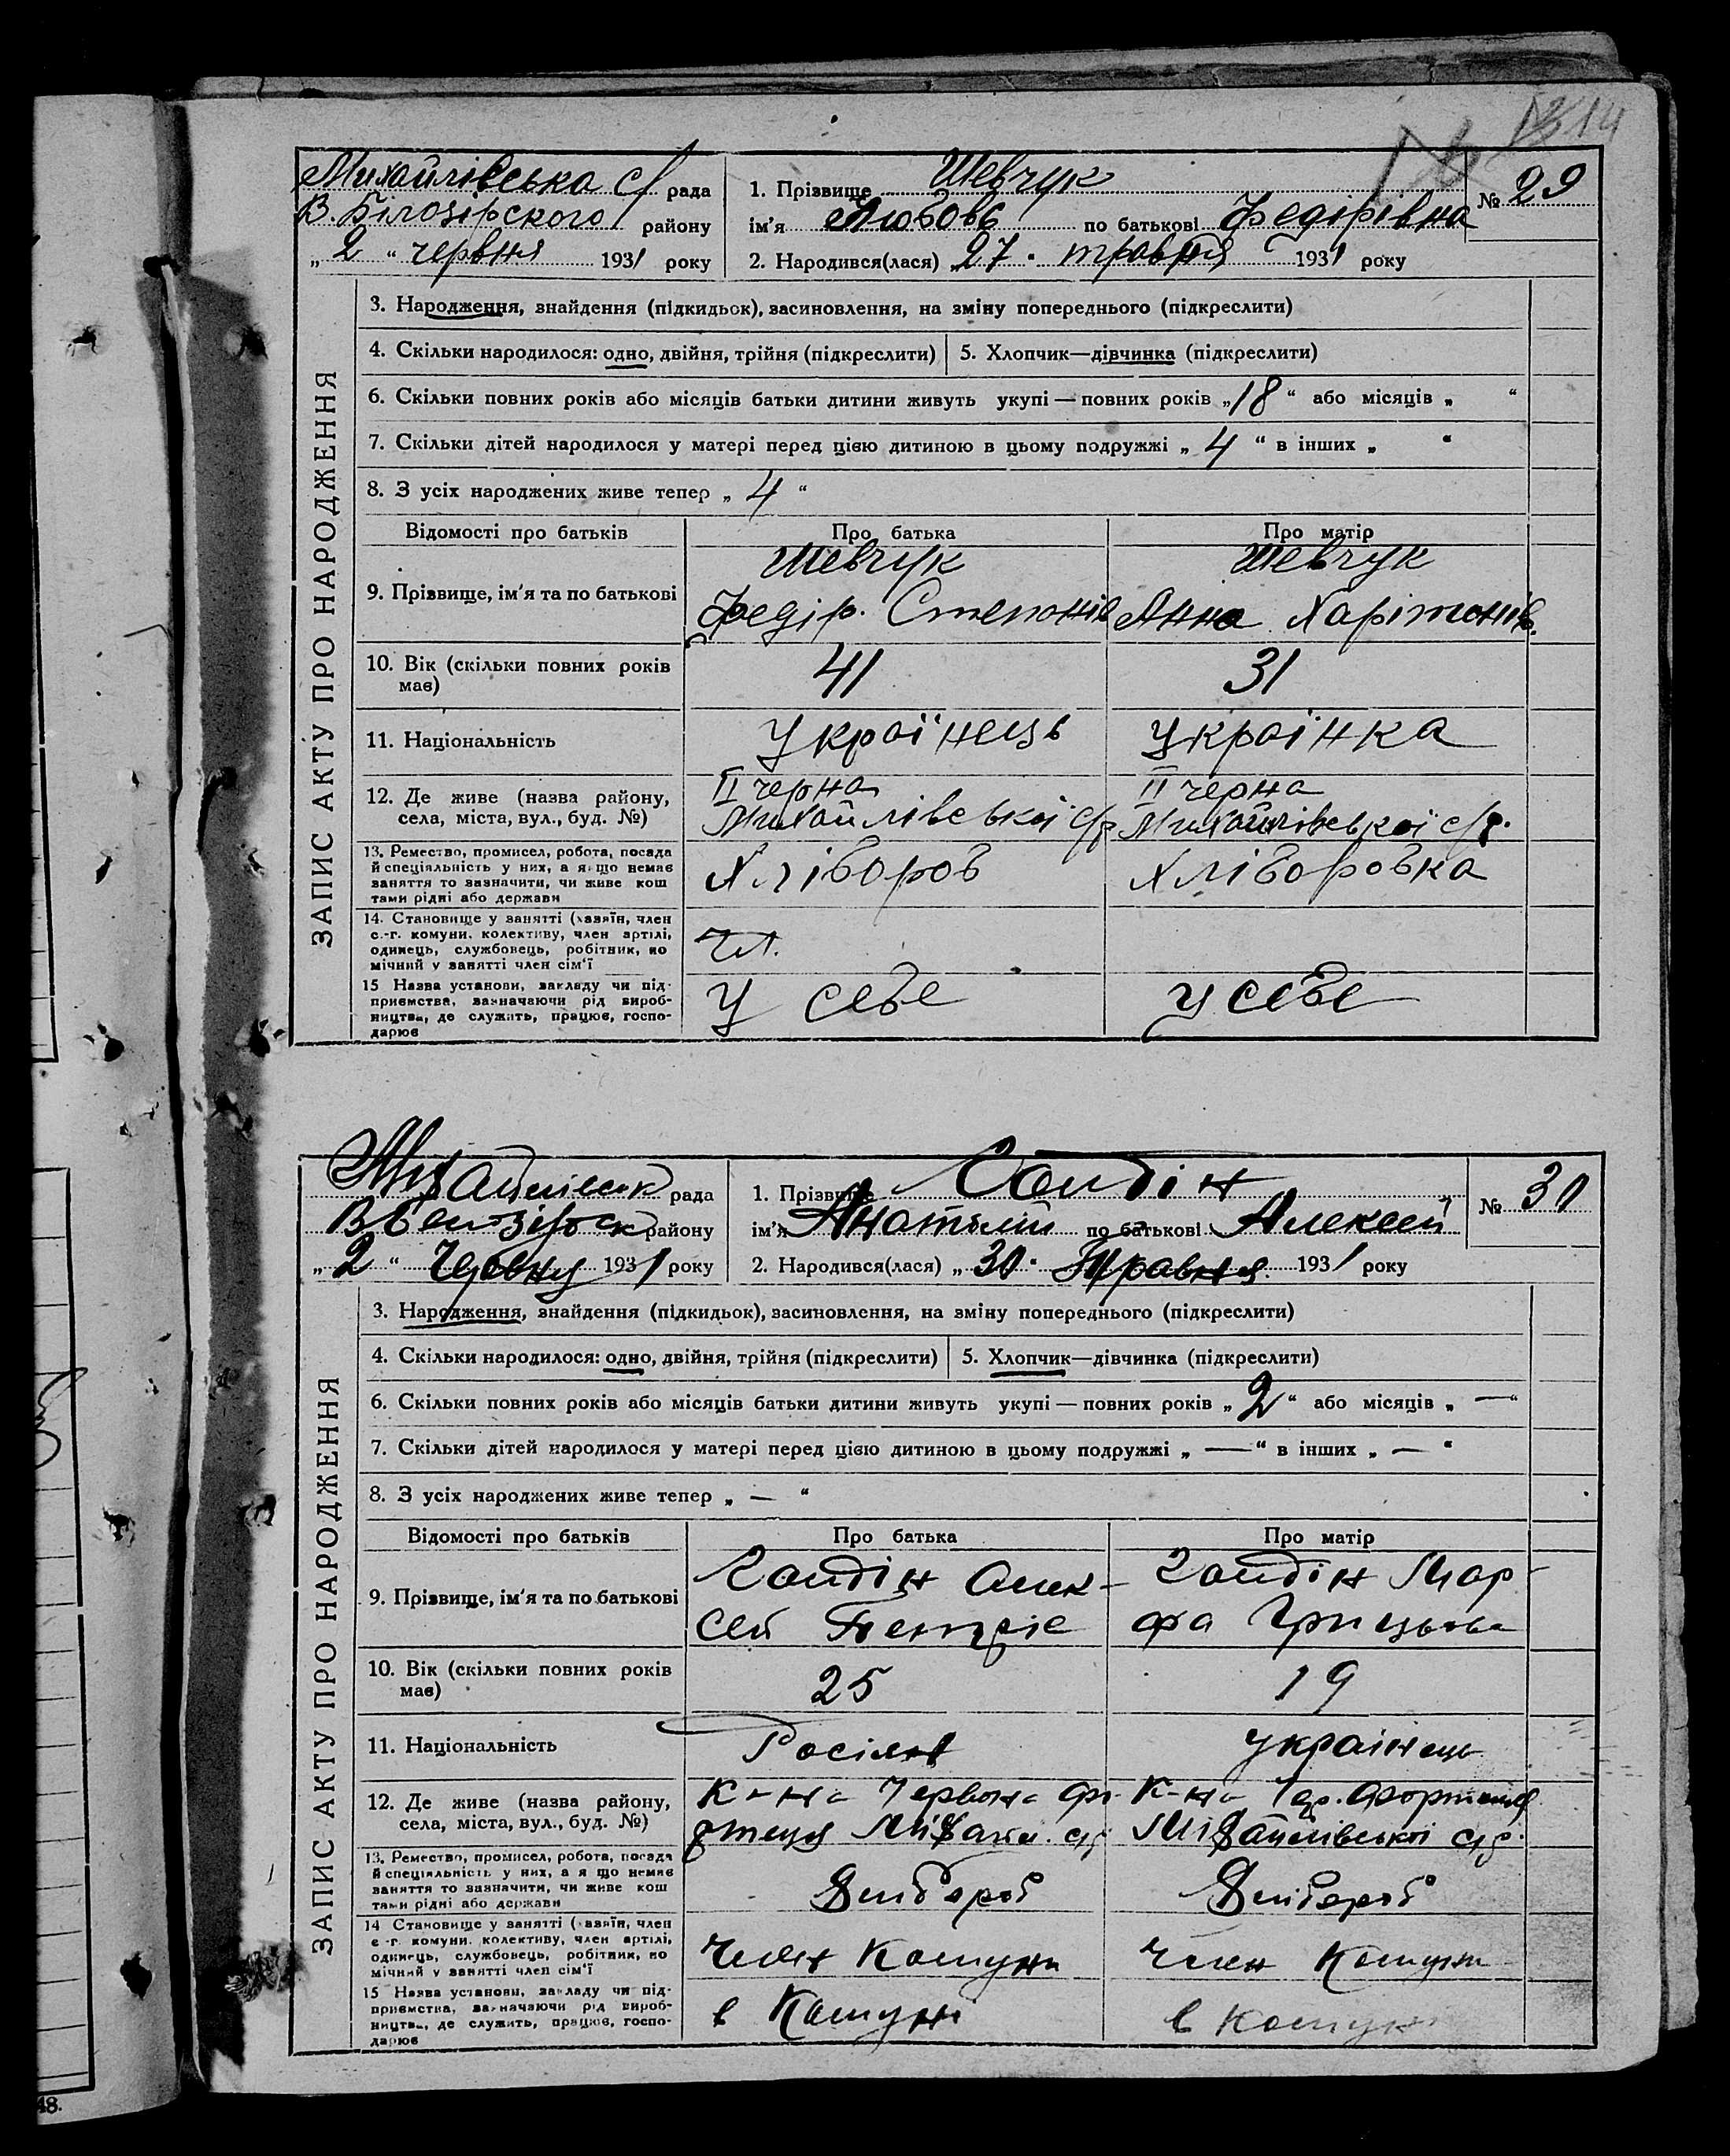 14
Михайлівська с/ рада
В. Білозірского району
„ 2 “ червня 1931 року
1. Прізвище Шевчук
ім'я Любовь по батькові Федірівна
№ 29
2. Народився(лася) „27“ травня 1931 року
ЗАПИС АКТУ ПРО НАРОДЖЕННЯ
3. Народження, знайдення (підкидьок), засиновлення, на зміну попереднього (підкреслити)
4. Скільки народилося: одно, двійня, трійня (підкреслити)
5. Хлопчик—дівчинка (підкреслити)
6. Скільки повних років або місяців батьки дитини живуть укупі — повних років „18“ або місяців „ “
7. Скільки дітей народилося у матері перед цією дитиною в цьому подружжі „ 4 “ в інших „ “
8. З усіх народжених живе тепер „ 4 “
Відомості про батьків Про батька Про матір
9. Прізвище, ім'я та по батькові
Шевчук
Федір. Степонів
Шевчук
Анна Харітонів.
10. Вік (скільки повних років має)
41
31
11. Національність
Українець
Українка
12. Де живе (назва району, села, міста, вул., буд. №)
II черна
Михайлівської с/р
II черна
Михайлівської с/р.
13. Ремество, промисел, робота, посада й спеціяльність у них, а якщо немає заняття то зазначити, чи живе коштами рідні або держави
Хлібороб
Хліборобка
14. Становище у занятті (хазяїн, член с.-г. комуни, колективу, член артілі, одинець, службовець, робітник, помічний у занятті член сім'ї
Чл.
15 Назва установи, закладу чи підприємства, зазначаючи рід виробництва, де служить, працює, господарює
У себе
У себе
рада
району
„ 2 “ 1931 року
1. Прізвище
ім'я Анатолій по батькові Алексей
№ 30
2. Народився(лася) „ 30 “ Травня 1931 року
ЗАПИС АКТУ ПРО НАРОДЖЕННЯ
3. Народження, знайдення (підкидьок), засиновлення, на зміну попереднього (підкреслити)
4. Скільки народилося: одно, двійня, трійня (підкреслити)
5. Хлопчик—дівчинка (підкреслити)
6. Скільки повних років або місяців батьки дитини живуть укупі — повних років „ 2 “ або місяців „ — “
7. Скільки дітей народилося у матері перед цією дитиною в цьому подружжі „ — “ в інших „ — “
8. З усіх народжених живе тепер „ — “
Відомості про батьків Про батька Про матір
9. Прізвище, ім'я та по батькові
Алек-
сей
Мар-
фа
10. Вік (скільки повних років має)
25
19
11. Національність
українець
12. Де живе (назва району, села, міста, вул., буд. №)
К-на Червона
К-на
Михайлівської
13. Ремество, промисел, робота, посада й спеціяльність у них, а якщо немає заняття то зазначити, чи живе коштами рідні або держави
Хлібороб
Хлібороб
14 Становище у занятті (хазяїн, член с.-г. комуни, колективу, член артілі, одинець, службовець, робітник, помічний у занятті член сім'ї
Член Комуни
Член Комуни
15 Назва установи, закладу чи підприємства, зазначаючи рід виробництва, де служить, працює, господарює
в Комуні
в Комуні
48.